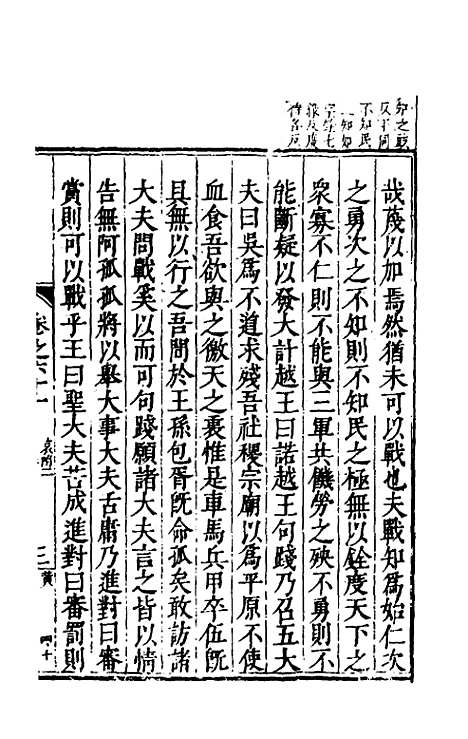 哉蔑以加焉然猶未可以戰也夫戰知爲始仁次
之勇次之不知則不知民之極無以銓度天下之
衆寡不仁則不能與三軍共饑勞之殃不勇則不
能斷疑以發大計越王曰諾越王句踐乃召五大
夫曰吳爲不道求殘吾社稷宗廟以爲平原不使
血食吾欲與之徼天之衷惟是車馬兵甲卒伍旣
具無以行之吾問於王孫包胥旣命孤矣敢訪諸
大夫問戰奚以而可句踐願諸大夫言之皆以情
告無阿孤孤將以舉大事大夫舌庸乃進對曰審
賞則可以戰乎王曰聖大夫苦成進對曰審罰則
卷之六十一